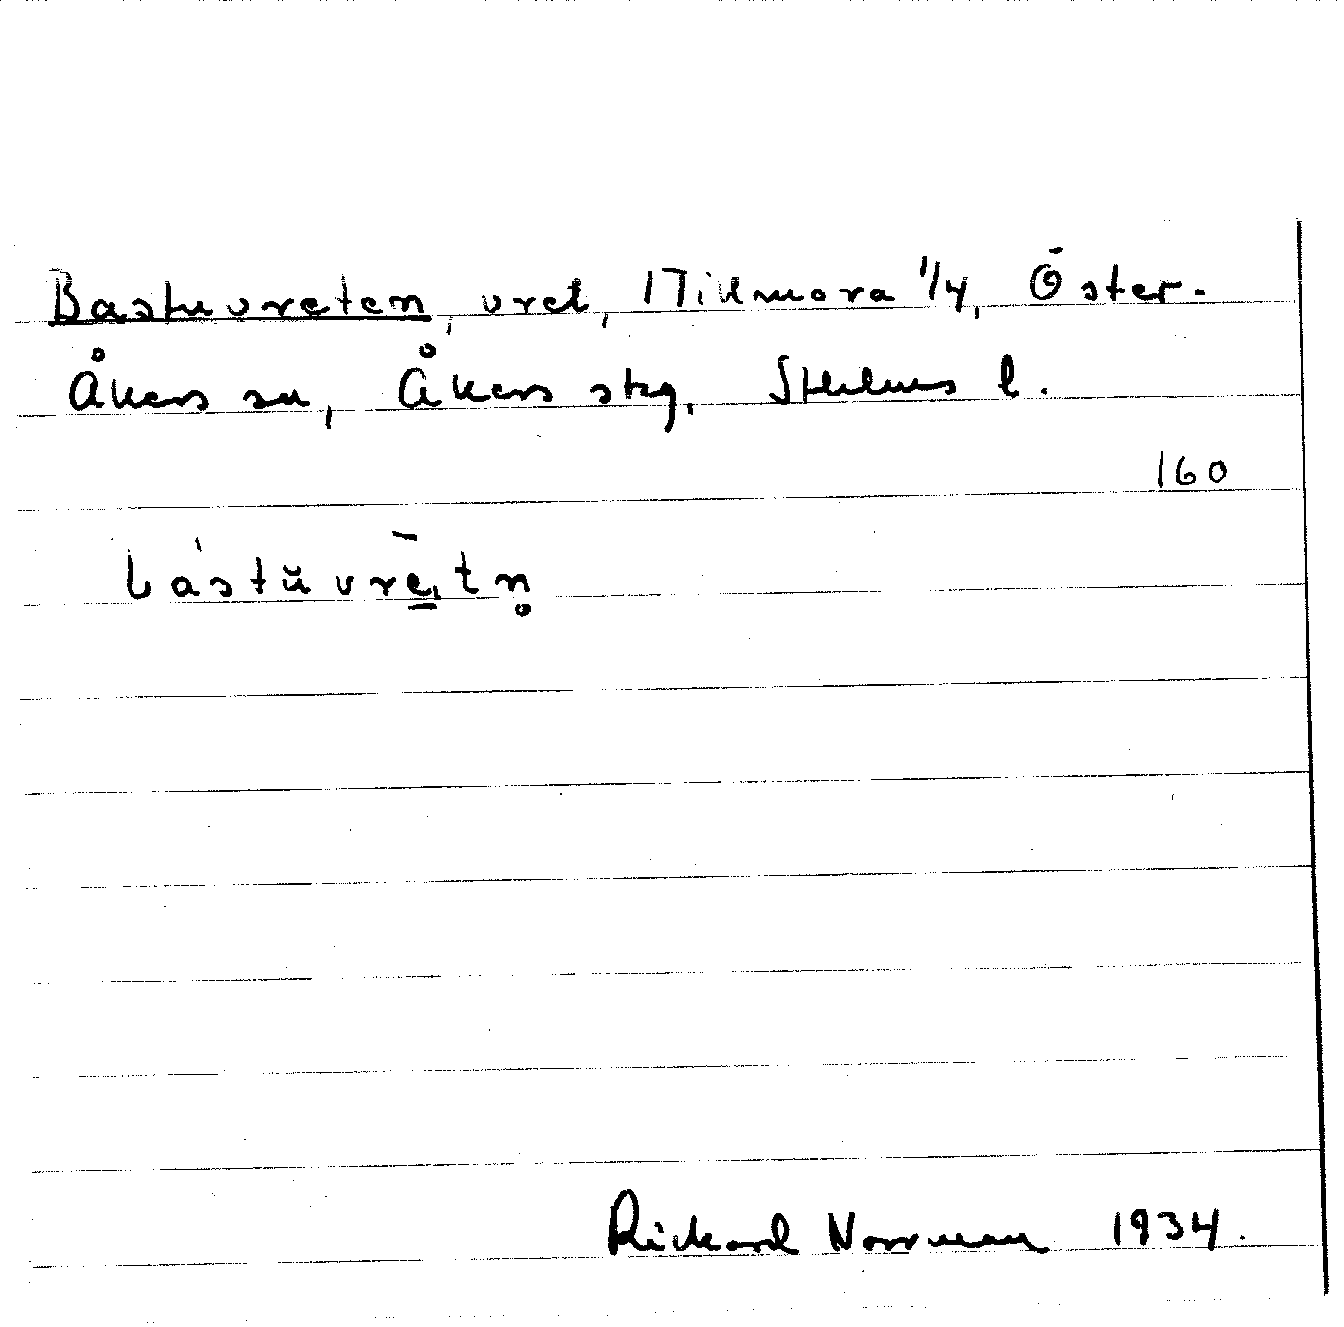 Bastuvreten, vret, Mikmora 1/4, Öster-
Åkers sn, Åkers skg, Sthlms l.
160
bástŭvrē̱tn̥
Rickard Norrman 1934.